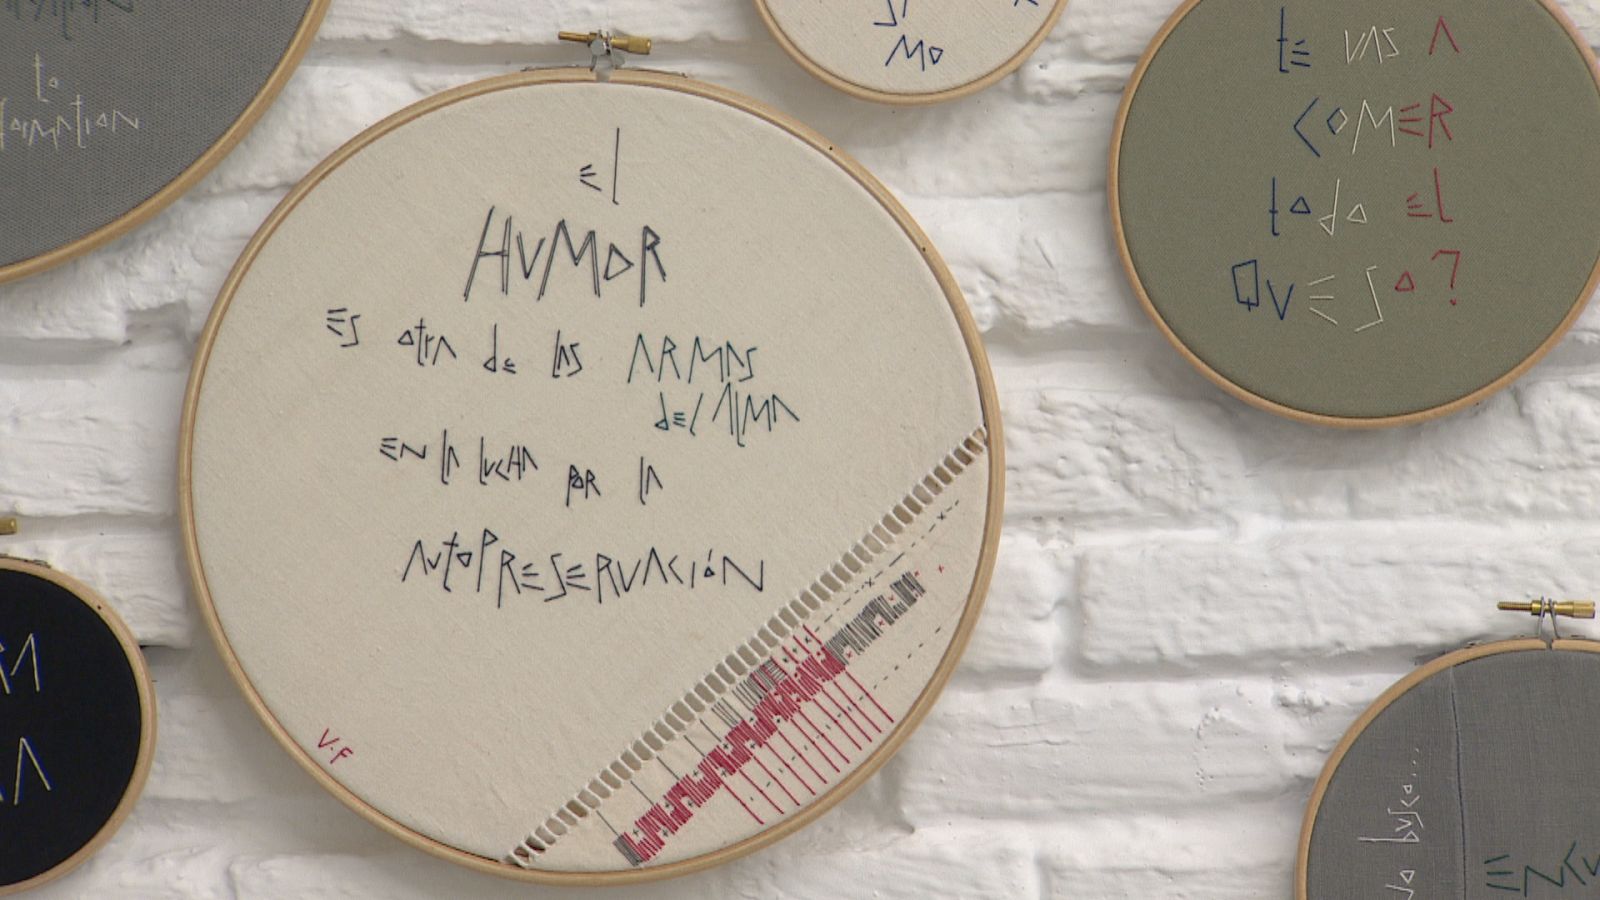 to
el
HUMOR
Es otra de las ARMAS
del AlMA
EN lA lUCHA POR lA
AutoPRESERVACIÓN
V.F
MO
tE VAS A
COMER
todo El
QUESO?
busca...